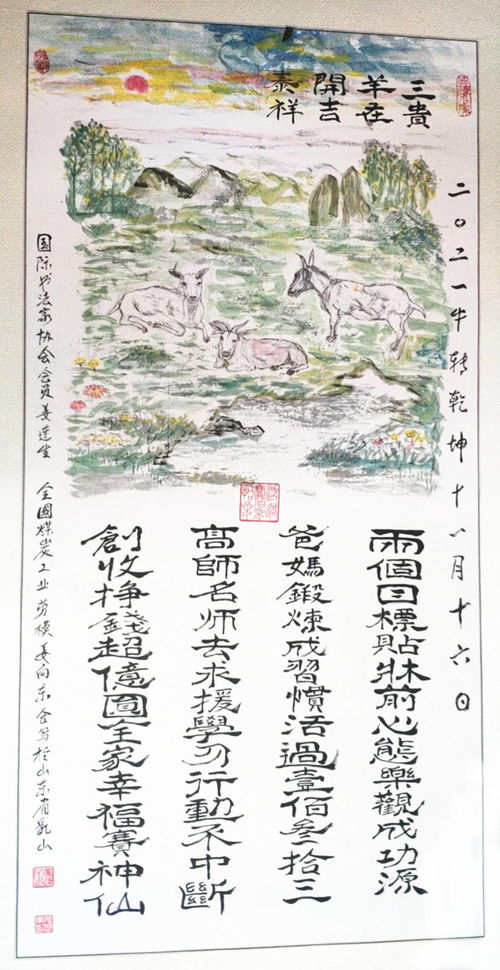 三羊開泰
貴在吉祥
二〇二一牛转乾坤十一月十六日
兩個目標貼牀前心態樂觀成功源
爸媽鍛煉成習慣活過壹佰叁拾三
高師名师去求援學习行動不中斷
創收挣錢超億圓全家幸福賽神仙
国际书法家协会会员姜连生 全國煤炭工业劳模姜向东合写於山东省乳山